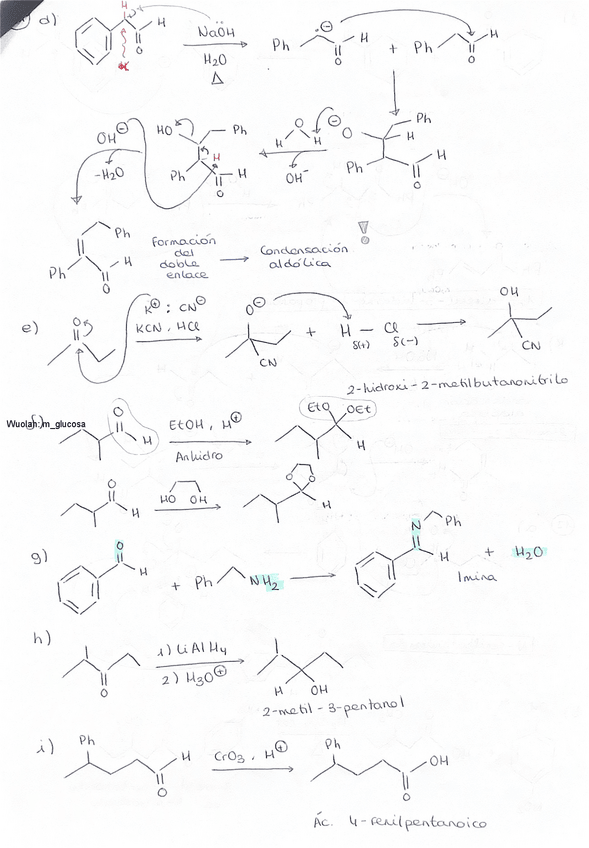 d) H H O NaÖH H₂O Δ Ph ⊖ H O + Ph H O
OH⊖ -H₂O HO Ph H Ph H O H O H OH⁻ ⊖ O Ph H Ph H O
Ph Ph H O Formación del doble enlace → Condensación aldólica !
e) O K⊕ : CN⊖ KCN, HCl O⊖ CN + H — Cl δ(+) δ(-) OH CN
2-hidroxi-2-metilbutanonitrilo
Wuolah: m_glucosa
f) O H EtOH, H⊕ Anhidro EtO OEt H
O H HO OH O O H
g) O H + Ph NH₂ N Ph H + H₂O
Imina
h) O 1) LiAlH₄ 2) H₃O⊕ H OH
2-metil-3-pentanol
i) Ph H O CrO₃, H⊕ Ph OH O
Ác. 4-fenilpentanoico